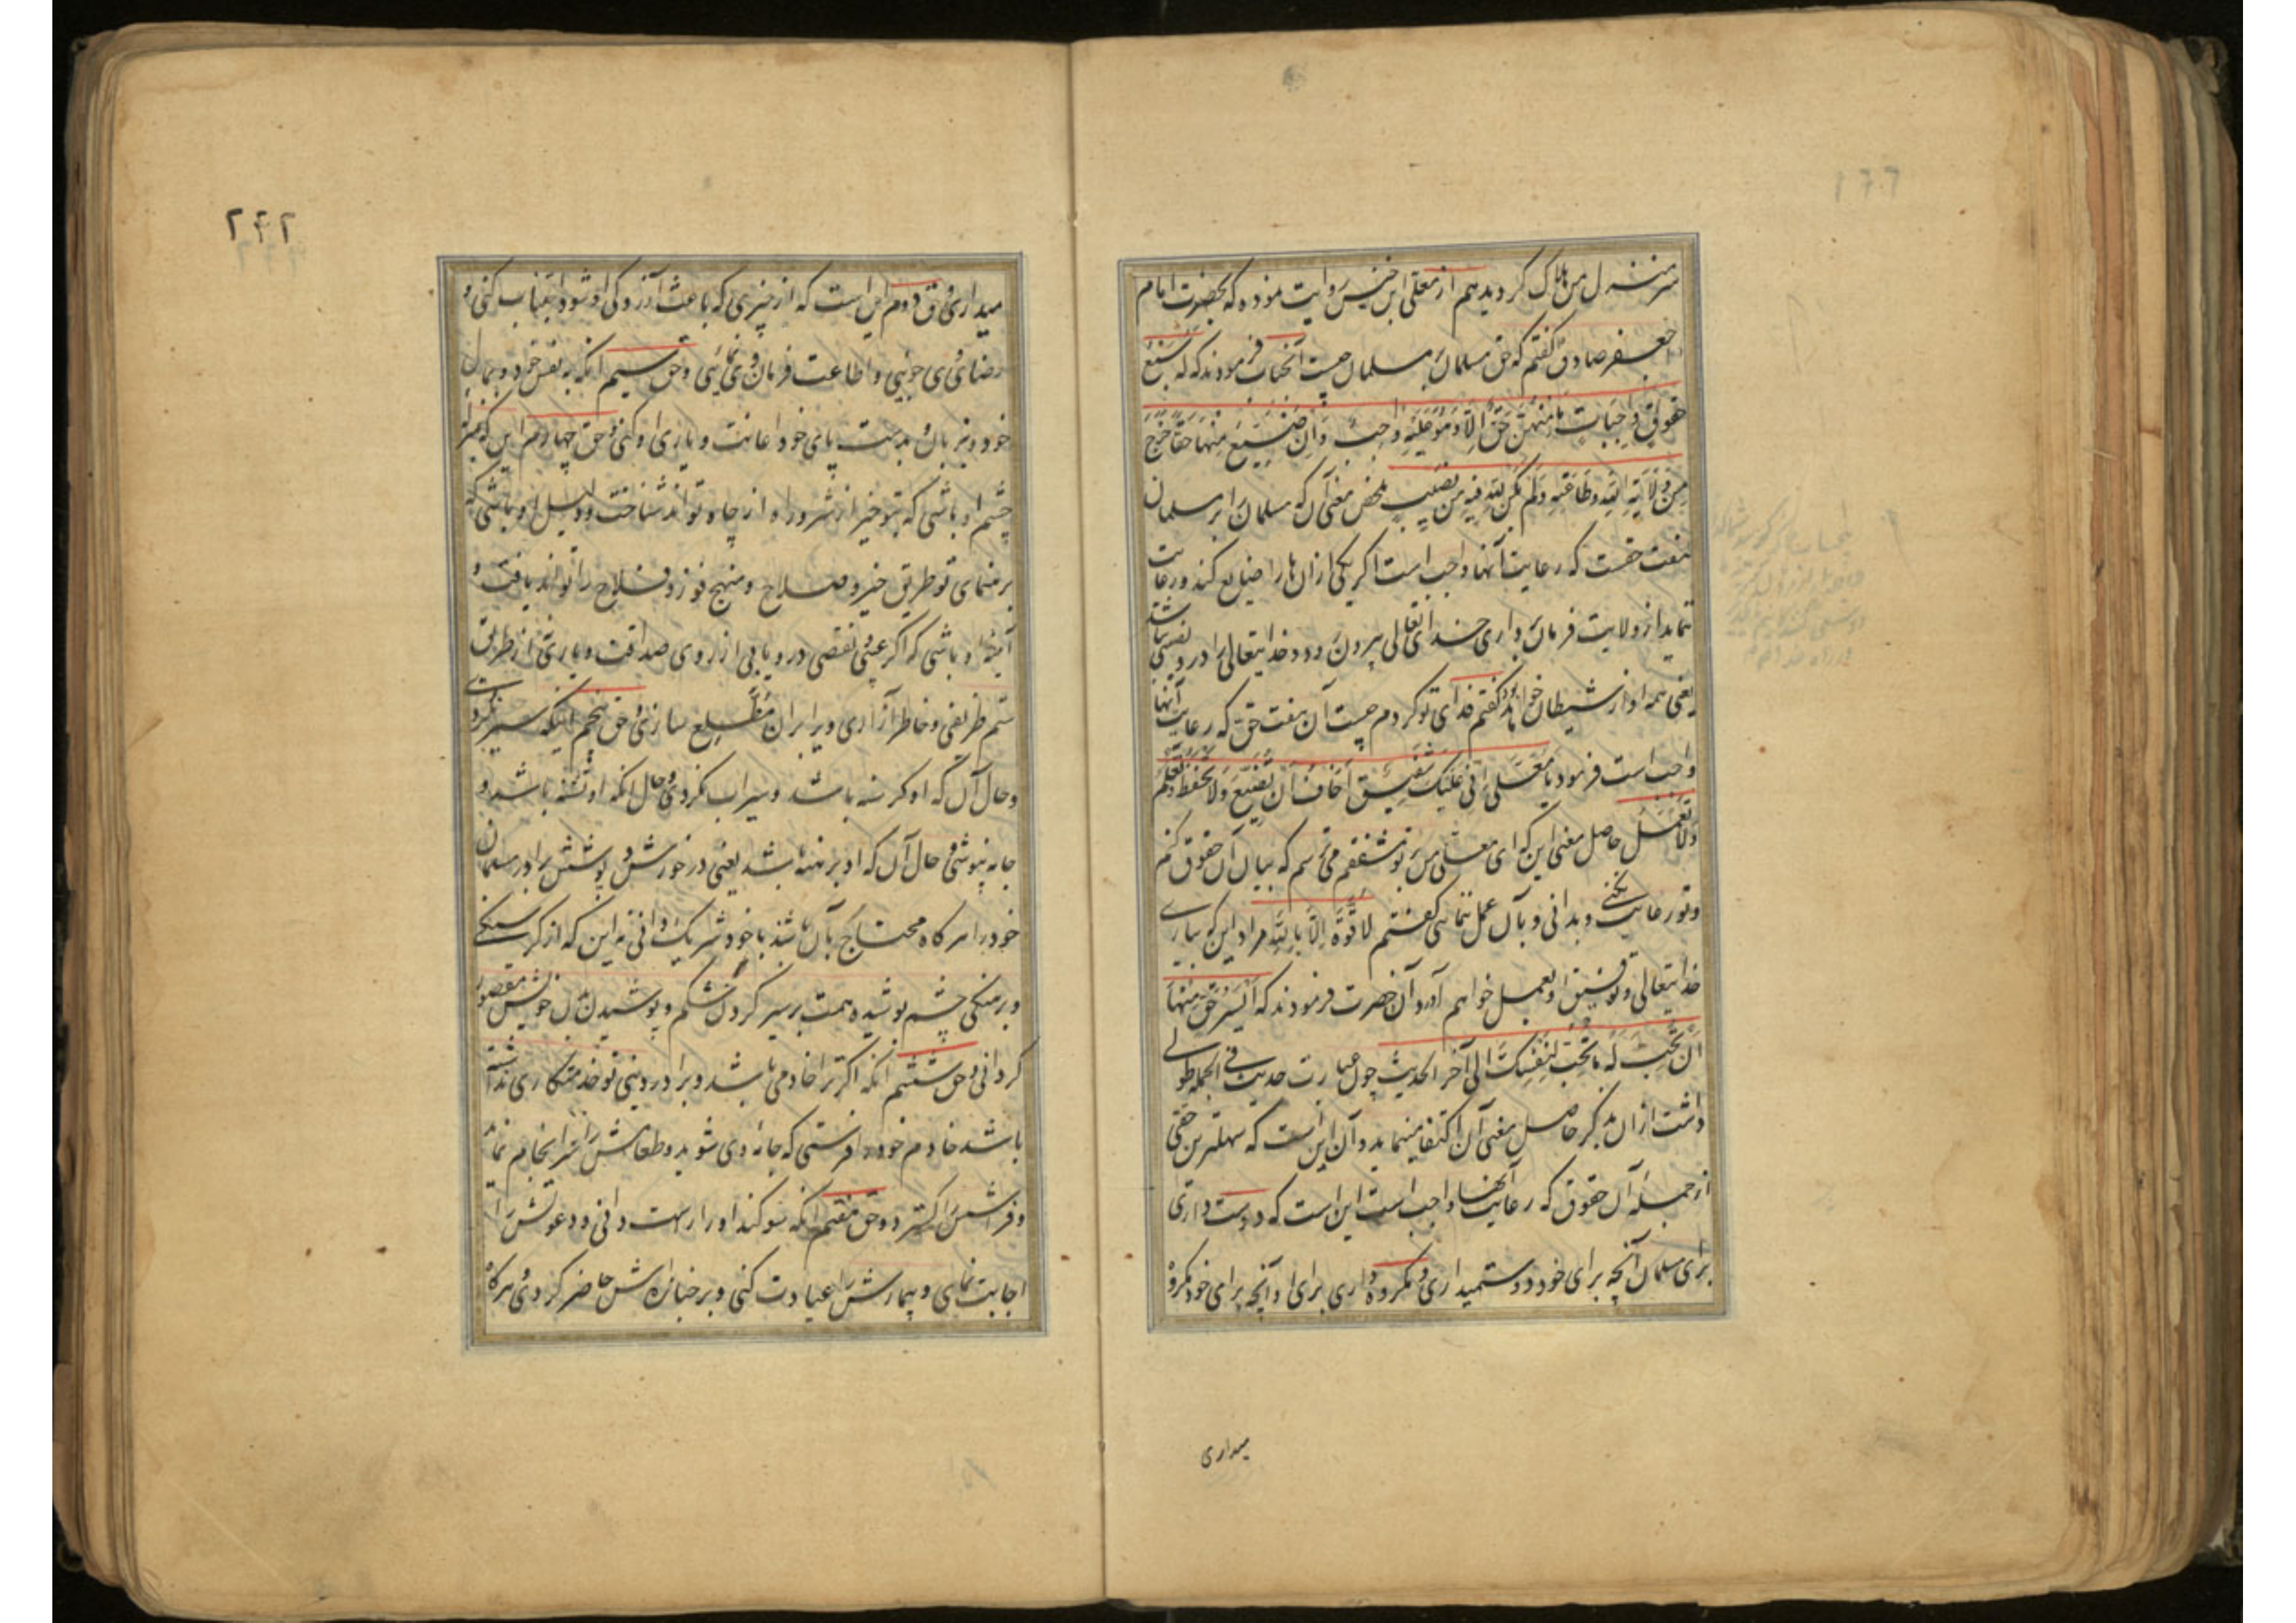 سر منزل من هلاک گردید هم از معلی ابن خنیس روایت نموده که بحضرت امام
جعفر صادق گفتم که حق مسلمان بر مسلمان چیست آنجناب فرمودند که له سبع
حقوق واجبات ما منهن حق الا و هو علیه واجب و ان ضیع منها حقا خرج
من ولایة الله و طاعته و لم یکن لله فیه من نصیب ملخص معنی آن که مسلمان را بر مسلمان
هفت حقست که رعایت آنها واجب است اگر یکی از ان ها را ضایع کند و رعایت
ننماید از ولایت و فرمان برداری خدای تعالی بیرون رود و خدایتعالی را در و نصیبی نباشد
یعنی همه او از شیطان خواهد بود گفتم فدای تو کردم چیست آن هفت حق که رعایت آنها
واجب است فرمود یا معلی انی علیک شفیق اخاف ان تضیع و لا تحفظ و تعلم
و لا تعمل حاصل معنی این که ای معلی من بر تو مشفقم می ترسم که بیان آن حقوق کنم
و تو رعایت نکنی و بدانی و بآن عمل ننمائی گفتم لا قوة الا بالله مراد این که بیاری
خدایتعالی و توفیق او بعمل خواهم آورد آن حضرت فرمودند که ایسر حق منها
ان تحب له ما تحب لنفسک الی آخر الحدیث چون عبارت حدیث فی الجمله طولی
داشت از ان بذکر حاصل معنی آن اکتفا مینماید و آن این است که سهلترین حقی
از جمله آن حقوق که رعایت آنها واجب است این است که دوست داری
برای مسلمان آنچه برای خود دوستمیداری و مکروه داری برای او آنچه برای خود مکروه
میداری
۲۴۲
میداری و حق دوم این است که از چیزی که باعث آزردگی او شود اجتناب کنی و
رضای وی جوئی و اطاعت فرمان وی نمائی و حق سیم آنکه به نفس خود و بمال
خود و بزبان و بدست و پای خود اعانت و یاری او کنی و حق چهارم این که بمنزله
چشم او باشی که بتو خیر از شر و راه از چاه تواند شناخت و دلیل او باشی که
برهنمای تو طریق خیر و صلاح و منهج فوز و فلاح را تواند یافت و
آینه او باشی که اگر عیبی و نقصی در و یابی از روی صداقت و یاری نه از طریق
ستم ظریفی و خاطر آزاری ویرا بران مطلع سازی و حق پنجم اینکه سیر نگردی
و حال آن که او گرسنه باشد و سیراب نگردی و حال آنکه او تشنه باشد و
جامه نپوشی و حال آن که او برهنه باشد یعنی در خورش و پوشش برادر مسلمان
خود را هر گاه محتاج بآن باشد با خود شریک دانی نه این که از گرسنگی
و برهنگی چشم پوشیده همت بر سیر کردن شکم و پوشیدن تن خویش مقصور
گردانی و حق ششم آنکه اگر ترا خادمی باشد و برادر دینی تو خدمتکاری نداشته
باشد خادم خود را فرستی که جامه وی شوید و طعامش را سرانجام نماید
و فراشش را گسترد و حق هفتم آنکه سوگند او را راست دانی و دعوتش را
اجابت نمای و بیمارش را عیادت کنی و بر جنازه اش حاضر گردی و هرگاه